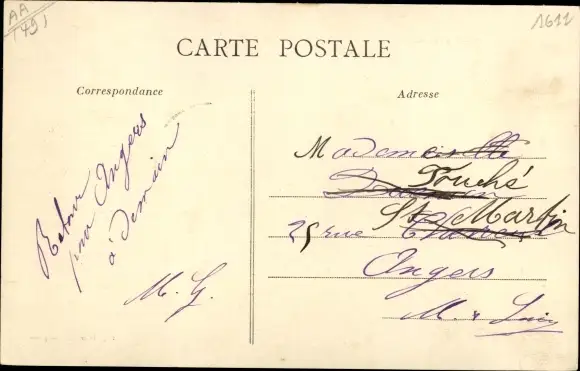 AA
(49)
1612
CARTE POSTALE
Correspondance
Adresse
Retour
pra Angers
à Demain
M. G.
Mademoiselle
Touché
25 rue St Martin
Angers
M. & Loire